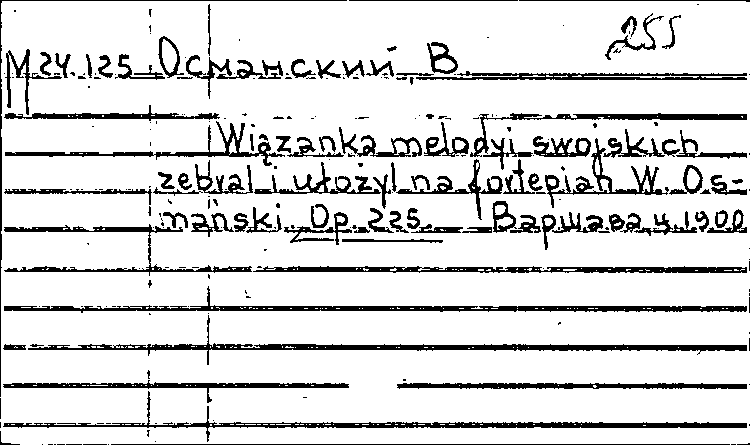 255
М 24.125 Османский, В.
Wiązanka melodyi swojskich
zebral i ułożyl na fortepian W. Os-
mański. Op. 225. Варшава, ц. 1900